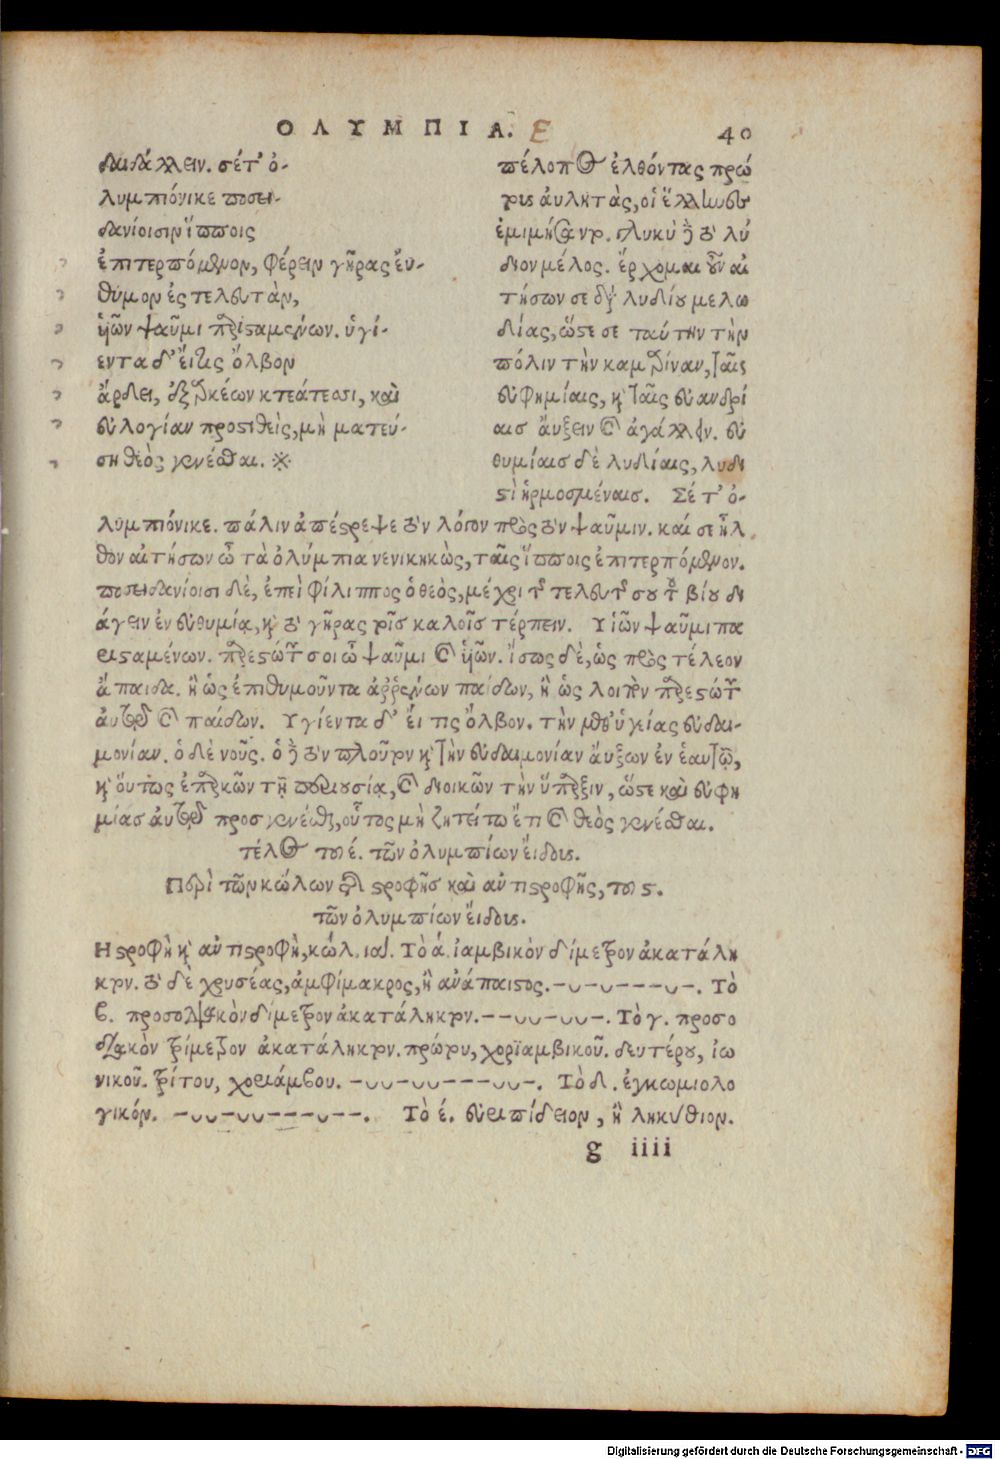 ΟΛΥΜΠΙΑ. Ε 40
δαιδάλλειν. σέτ' ὀ-
λυμπιόνικε ποσει-
δανίοισιν ἵπποις
ἐπιτερπόμενον, φέρειν γῆρας εὔ-
θυμον ἐς τελευτὰν,
υἱῶν ψαῦμι παρισαμένων. ὑγί-
εντα δ' εἴ τις ὄλβον
ἄρδει, ἐξαρκέων κτεάτεσσι, καὶ
εὐλογίαν προστιθεὶς, μὴ ματεύ-
ση θεὸς γενέσθαι. ※
πέλοπος ἐλθόντας πρώ
τους αὐλητὰς, οἱ ἕλληνες
ἐμιμήσαντο. γλυκὺ γὰρ τὸ λύ
διον μέλος. ἔρχομαι οὖν αἰ
τήσων σε διὰ λυδίου μελω
δίας, ὥστε σε ταύτην τὴν
πόλιν τὴν καμαρίναν, ταῖς
εὐφημίαις, καὶ ταῖς εὐανδρί
αις αὔξειν καὶ ἀγάλλειν. εὐ
θυμίαισ δὲ λυδίαις, λυδι
στὶ ἡρμοσμέναισ. Σέ τ' ὀ-
λυμπιόνικε. πάλιν ἀπέστρεψε τὸν λόγον πρὸς τὸν ψαῦμιν. καί σε ἦλ
θον αἰτήσων ὦ τὰ ὀλύμπια νενικηκὼς, ταῖς ἵπποις ἐπιτερπόμενον.
ποσειδανίοισι δὲ, ἐπεὶ φίλιππος ὁ θεὸς, μέχρι τῆς τελευτῆς σου τοῦ βίου δι
άγειν ἐν εὐθυμίᾳ, καὶ τὸ γῆρας τοῖς καλοῖσ τέρπειν. Υἱῶν ψαῦμι πα
ρισαμένων. παρεστώτων σοι ὦ ψαῦμι καὶ υἱῶν. ἴσως δὲ, ὡς πρὸς τέλεον
ἄπαιδα. ἢ ὡς ἐπιθυμοῦντα ἀρρένων παίδων, ἢ ὡς λοιπὸν παρεστώτων
αὐτῷ καὶ παίδων. Υγίεντα δ' εἴ τις ὄλβον. τὴν μεθ' ὑγείας εὐδαι-
μονίαν. ὁ δὲ νοῦς. ὁ γὰρ τὸν πλοῦτον καὶ τὴν εὐδαιμονίαν αὔξων ἐν ἑαυτῷ,
καὶ οὕτως ἐπαρκῶν τῇ περιουσίᾳ, καὶ διοικῶν τὴν ὕπαρξιν, ὥστε καὶ εὐφη
μίας αὐτῷ προσγενέσθαι, οὗτος μὴ ζητείτω ἔτι καὶ θεὸς γενέσθαι.
τέλος τοῦ έ. τῶν ὀλυμπίων εἴδους.
Περὶ τῶν κώλων τῆς στροφῆσ καὶ ἀντιστροφῆς, τοῦ ϛ.
τῶν ὀλυμπίων εἴδους.
Η στροφὴ καὶ ἀντιστροφὴ, κώλ. ιαʹ. Τὸ ά. ἰαμβικὸν δίμετρον ἀκατάλη
κτον. τὸ δὲ χρυσέας, ἀμφίμακρος, ἢ ἀνάπαιστος. -υ-υ---υ-. Τὸ
β. προσοδιακὸν δίμετρον ἀκατάληκτον. --υυ-υυ-. Τὸ γ. προσο
διακὸν τρίμετρον ἀκατάληκτον. πρώτου, χοριαμβικοῦ. δευτέρου, ἰω
νικοῦ. τρίτου, χοριάμβου. -υυ-υυ---υυ-. Τὸ δ. ἐγκωμιολο
γικόν. -υυ-υυ---υ--. Τὸ έ. εὐριπίδειον, ἢ ληκύθιον.
g iiii
Digitalisierung gefördert durch die Deutsche Forschungsgemeinschaft - DFG